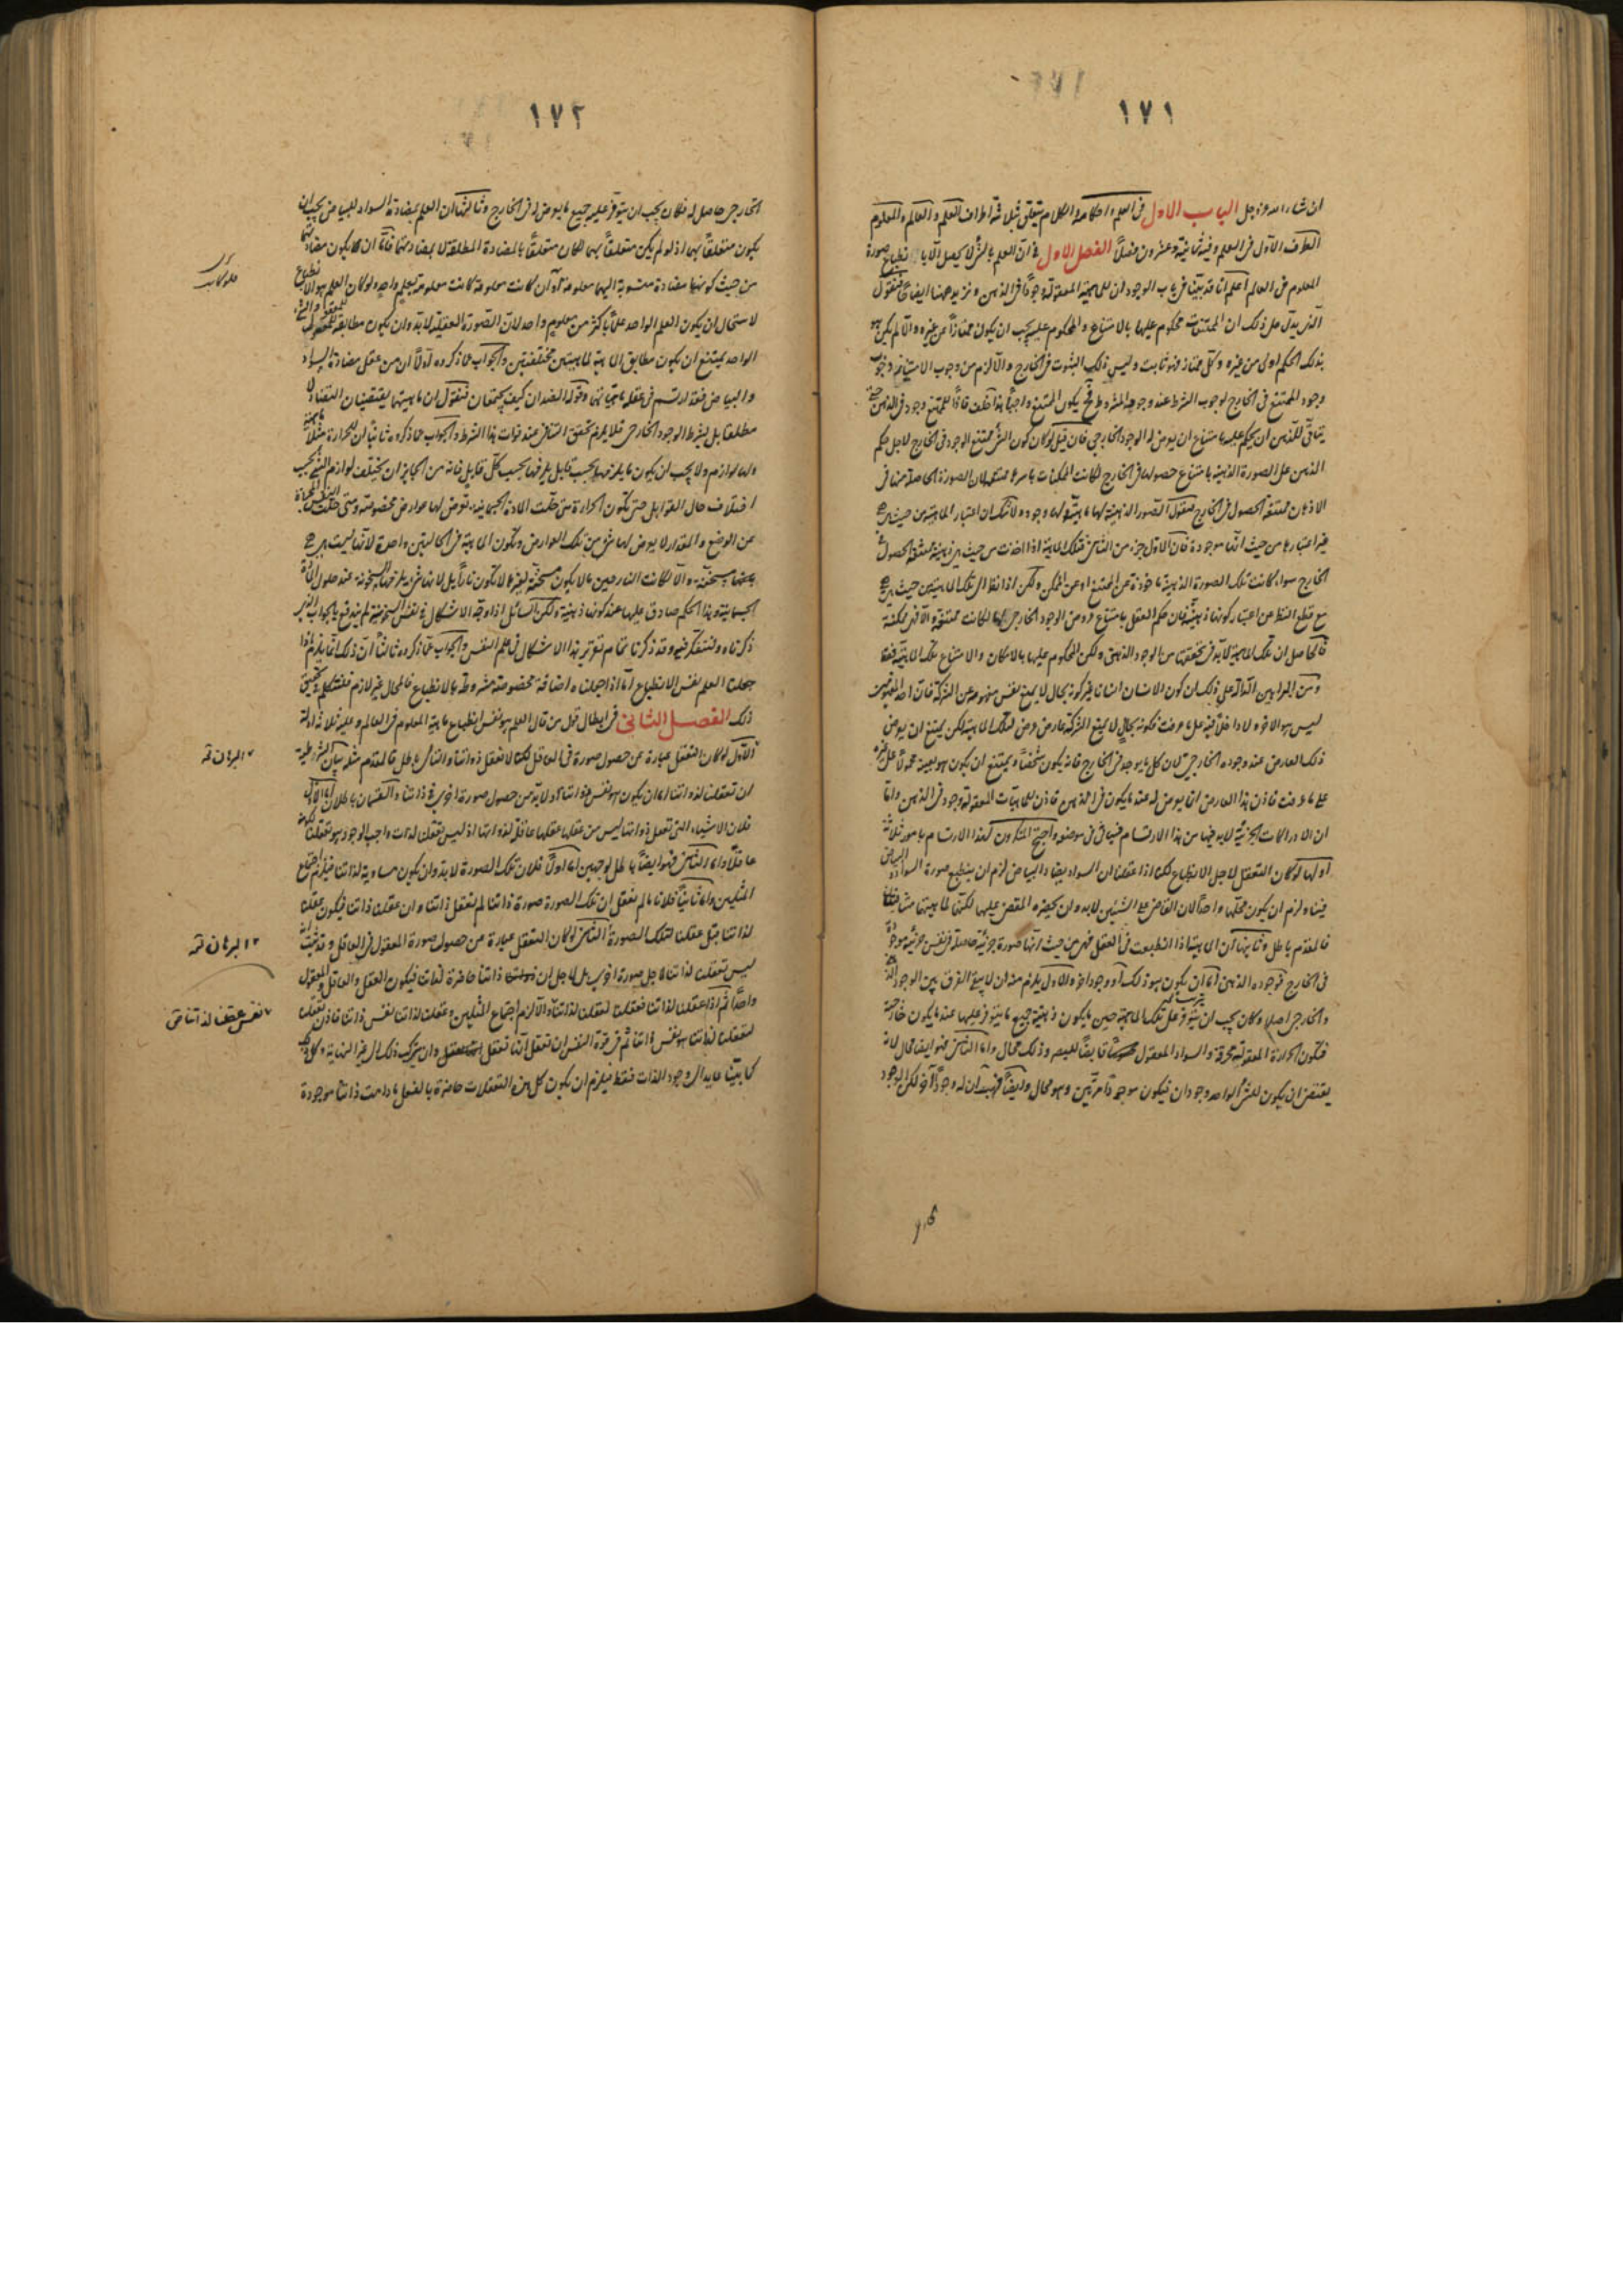 ١٧١
ان شاء الله عز وجل الباب الاول فى العلم واحكامه والكلام يتعلق بثلاثة اطراف العلم والعالم والمعلوم
الطرف الاول فى العلم وفيه ثمانية وعشرون فصلاً الفصل الاول فى ان العلم بالشئ لا يحصل الا بانطباع صورة
المعلوم فى العالم اعلم انا قد بينا فى باب الوجود ان للماهية المعقولة وجوداً فى الذهن ونزيد ههنا ايضاحاً فنقول
الذى يدل على ذلك ان الممتنعات محكوم عليها بالامتناع والمحكوم عليه يجب ان يكون ممتازاً عن غيره والا لم يكن هو
بذلك الحكم اولى من غيره وكل ممتاز فهو ثابت وليس ذلك الثبوت فى الخارج والا لزم من وجوب الامتياز وجوب
وجود الممتنع فى الخارج لوجوب الشرط عند وجود المشروط فح يكون الممتنع واجباً هذا خلف فاذاً للممتنع وجود فى الذهن حتى
يتأتى للذهن ان يحكم عليه بامتناع ان يعرض له الوجود الخارجى فان قيل لو كان كون الشئ ممتنع الوجود فى الخارج لاجل حكم
الذهن على الصورة الذهنية بامتناع حصولها فى الخارج لكانت الممكنات باسرها ممتنعة لان الصورة الحاصلة منها فى
الاذهان ممتنعة الحصول فى الخارج فنقول الصور الذهنية لها ماهية ولها وجود ولا شك ان اعتبار الماهية من حيث هى
غير اعتبارها من حيث انها موجودة فان الاول جزء من الثانى فتلك الماهية اذا اخذت من حيث هى ذهنية ممتنعة الحصول فى
الخارج سواء كانت تلك الصورة الذهنية ماخوذة عن الممتنع او عن الممكن ولكن اذا نظر الى تلك الماهية من حيث هى هى
مع قطع النظر عن اعتبار كونها ذهنية فان حكم العقل بامتناع عروض الوجود الخارجى لها كانت ممتنعة والا فهى ممكنة
فالحاصل ان تلك الماهية لا بد فى تحققها من الوجود الذهنى ولكن المحكوم عليها بالامكان والامتناع تلك الماهية فقط
ومن البراهين الدالة على ذلك ان كون الانسان انسانا غير كونه بحال لا يمنع نفس مفهومه عن الشركة فان احد المفهومين
ليس هو الاخر ولا داخلاً فيه على ما عرفت فكونه بحال لا يمنع الشركة عارض عرض لتلك الماهية لكن يمتنع ان يعرض
ذلك العارض عند وجوده الخارجى لان كل ما يوجد فى الخارج فانه يكون مشخصاً ويمتنع ان يكون هو بعينه محمولاً على غيره
على ما عرفت فاذن هذا العارض انما يعرض له عند ما يكون فى الذهن فاذن للماهيات المعقولة وجود فى الذهن واما
ان الادراكات الجزئية لا بد فيها من هذا الارتسام فسيأتى فى موضعه واحتج المنكرون لهذا الارتسام بامور ثلاثة
اولها لو كان التعقل لاجل الانطباع لكنا اذا عقلنا ان السواد يضاد البياض لزم ان ينطبع صورة السواد والبياض
فينا ولزم ان يكون محلها واحداً لان القاضى على الشيئين لا بد وان يحضره المقضى عليهما لكنهما لماهيتهما متنافيتان
فالمقدم باطل وثانيها ان الماهية اذا انطبعت فى العقل فهى من حيث انها صورة جزئية حاصلة فى نفس جزئية موجودة
فى الخارج فوجوده الذهنى اما ان يكون هو ذلك او وجوداً اخر والاول يلزم منه ان لا يبقى الفرق بين الوجود الذهنى
والخارجى اصلاً وكان يجب ان يترتب على تلك الماهية حين ما يكون ذهنية جميع ما يترتب عليها عند ما يكون خارجية
فيكون الحرارة المعقولة محرقة والسواد المعقول قابضاً للبصر وذلك محال واما الثانى فهو ايضا محال لانه
يقتضى ان يكون للشئ الواحد وجودان فيكون موجوداً مرتين وهو محال وايضاً فهب ان له وجوداً اخر لكن الوجود
١٧٢
الخارجى حاصل له فكان يجب ان يترتب عليه جميع ما يعرض له فى الخارج وثالثها ان العلم بمضادة السواد للبياض يجب ان
يكون متعلقاً بهما اذ لو لم يكن متعلقاً بهما لكان متعلقاً بالمضادة المطلقة لا بمضادتهما فاذاً ان كان يكون مضادتهما
من حيث كونها مضادة منسوبة اليهما معلومة وان كانت معلومة كانت معلومة بعلم واحد ولو كان العلم هو الانطباع
لاستحال ان يكون العلم الواحد علماً باكثر من معلوم واحد لان الصورة العقلية لا بد وان يكون مطابقة للمعقول
الواحد يمتنع ان يكون مطابق الماهية لماهيتين مختلفتين والجواب عما ذكروه اولاً ان من عقل مضادة السواد
والبياض فقد ارتسم فى عقله ماهيتاهما وقوله الضدان كيف يجتمعان فنقول ان ماهيتهما يقتضيان التضاد لا
مطلقا بل بشرط الوجود الخارجى فلا يلزم تحقق التنافى عند فوات هذا الشرط والجواب عما ذكروه ثانياً ان للحرارة مثلاً ماهية
ولها لوازم ولا يجب ان يكون ما يلزمها بحسب قابل يلزمها بحسب كل قابل فانه من الجائز ان يختلف لوازم الشئ بحسب
اختلاف حال القوابل حتى تكون الحرارة متى حلت المادة الجسمانية تعرض لها عوارض مخصوصة ومتى حلت النفس المجردة
عن الوضع والمقدار لا يعرض لها شئ من تلك العوارض وتكون الماهية فى الحالتين واحدة لانها ليست هى
الجسمانية وهذا الحكم صادق عليها عند كونها ذهنية ولكن السائل اذا وجه الاشكال فى نفس السخونة لم يندفع بالجواب الذى
ذكرناه ولنتفكر فيه وقد ذكرنا تمام تقرير هذا الاشكال فى علم النفس والجواب عما ذكروه ثالثاً ان ذلك انما يلزم اذا
جعلنا العلم نفس الانطباع اما اذا جعلناه اضافة مخصوصة مشروطة بالانطباع فالمحال غير لازم فلنتكلم فى تحقيق
ذلك الفصل الثانى فى ابطال قول من قال العلم هو نفس انطباع ماهية المعلوم فى العالم وعليه ثلاثة ادلة
الاول لو كان التعقل عبارة عن حصول صورة فى العاقل لكنا لا نعقل ذواتنا والتالى باطل فالمقدم مثله بيان الشرطية
ان تعقلنا لذواتنا اما ان يكون هو نفس ذواتنا او لا بد من حصول صورة اخرى فى ذاتنا والقسمان باطلان اما الاول
فلان الاشياء التى تعقل ذواتها ليس من عقلها عقلها عاقلة لذواتها اذ ليس تعقلنا لذات واجب الوجود هو تعقلنا لكونه
عاقلاً واما الثانى فهو ايضاً باطل لوجهين اما اولاً فلان تلك الصورة لا بد وان يكون مساوية لذاتنا فيلزم اجتماع
المثلين واما ثانياً فلانا ما لم نعقل ان تلك الصورة صورة ذاتنا لم نعقل ذاتنا وان عقلنا ذاتنا فيكون عقلنا
لذاتنا قبل عقلنا لتلك الصورة الثانى لو كان التعقل عبارة عن حصول صورة المعقول فى العاقل وقد ثبت انه
ليس تعقلنا لذاتنا لاجل صورة اخرى بل لاجل ان ذاتنا حاضرة لذاتنا فيكون العقل والعاقل والمعقول
واحداً ثم اذا عقلنا لذاتنا فعقلنا لعقلنا لذاتنا والا لزم اجتماع المثلين وعقلنا لذاتنا نفس ذاتنا فاذن تعقلنا
لعقلنا لذاتنا هو نفس ذاتنا ثم فى قوة النفس ان تعقل انها تعقل وان يتركب ذلك الى غير النهاية
كما بينا عايد الى وجود الذات فقط فيلزم ان يكون كل هذه التعقلات حاضرة بالفعل ما دامت ذاتنا موجودة
البرهان
البرهان